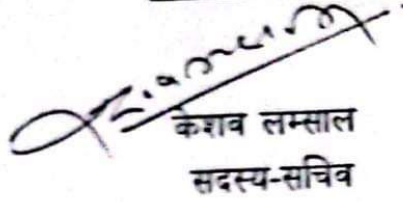 केशव लम्साल
सदस्य-सचिव